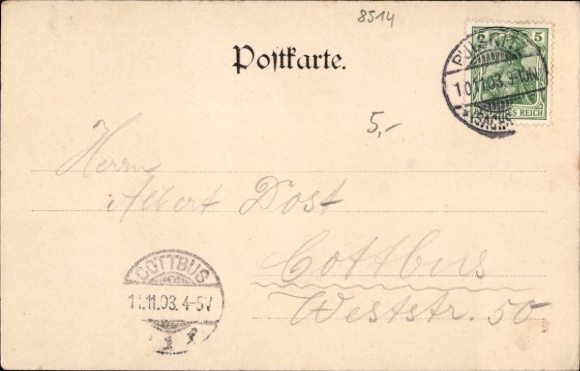 8514
Postkarte.
5
REICH
PULSNITZ
10.11.03. 9-10N
(SACHS)
5,-
Herrn
Albert Dost
Cottbus
Weststr. 50
COTTBUS
11.11.03. 4-5V